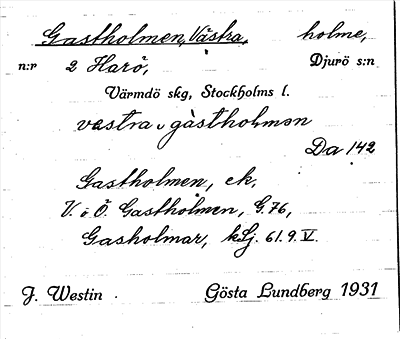 Gastholmen, Västra, holme,
n:r 2 Harö, Djurö s:n
Värmdö skg, Stockholms l.
vastra gàstholmən
Da 142
Gastholmen, ek,
V. o Ö. Gastholmen, G. 76,
Gasholmar, kLj. 61. 9. V.
J. Westin Gösta Lundberg 1931